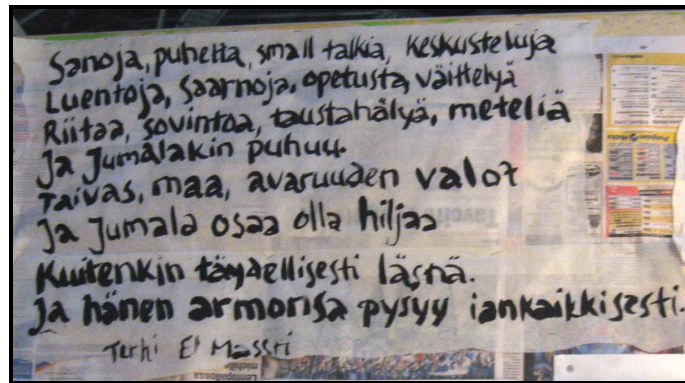 Sanoja, puhetta, small talkia, keskusteluja
Luentoja, saarnoja, opetusta, väittelyä
Riitaa, sovintoa, taustahälyä, meteliä
Ja Jumalakin puhuu.
Taivas, maa, avaruuden valot
Ja Jumala osaa olla hiljaa
Kuitenkin täydellisesti läsnä.
Ja hänen armonsa pysyy iankaikkisesti.
Terhi El Massri